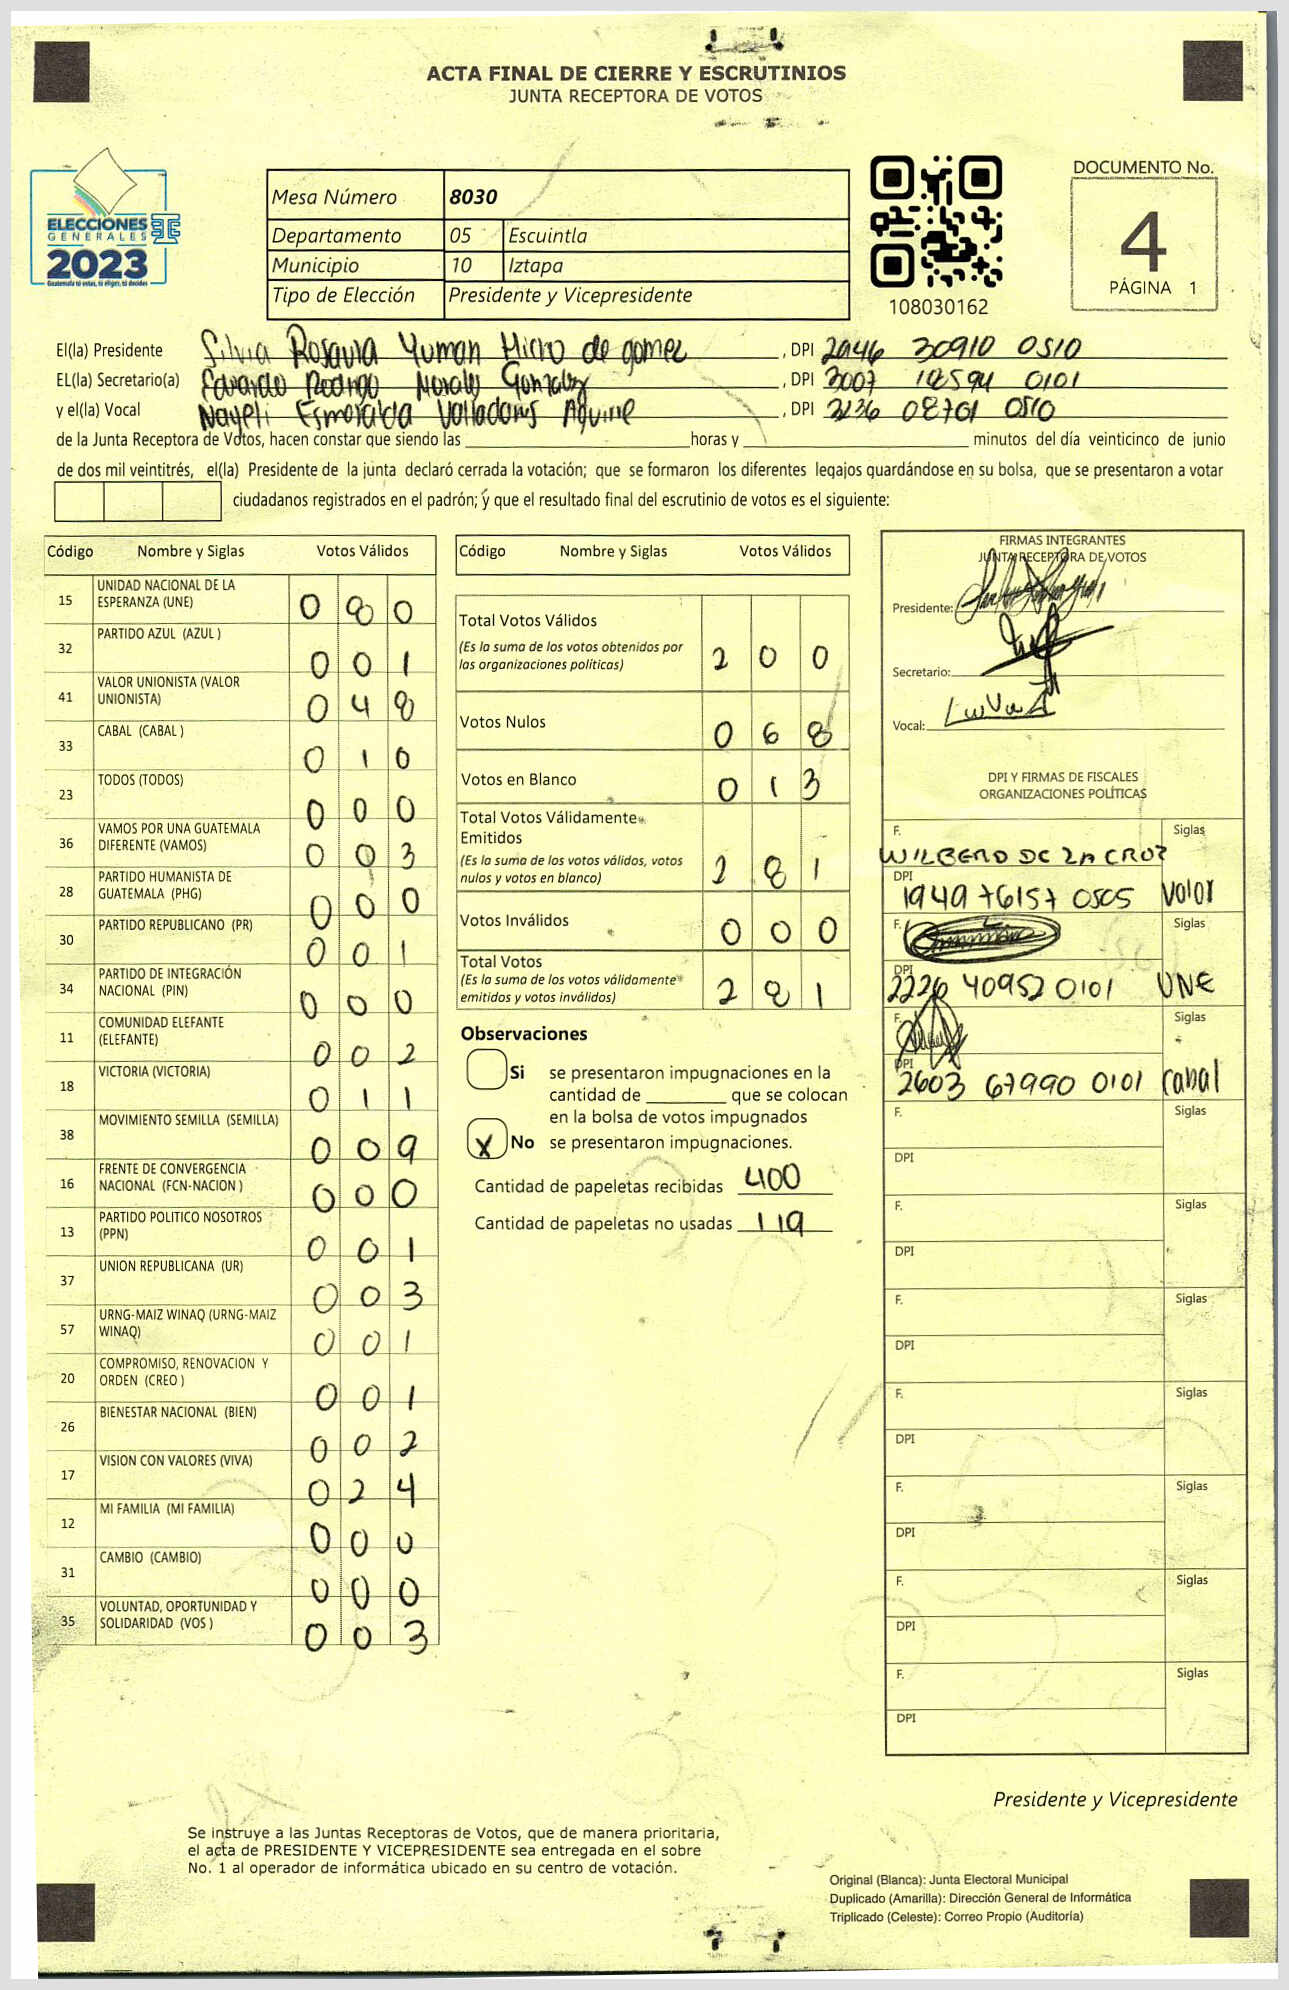 ACTA FINAL DE CIERRE Y ESCRUTINIOS
JUNTA RECEPTORA DE VOTOS
ELECCIONES
GENERALES
2023
Guatemala tú estas, tú eliges, tú decides
Mesa Número 8030
Departamento 05 Escuintla
Municipio 10 Iztapa
Tipo de Elección Presidente y Vicepresidente
108030162
DOCUMENTO No.
4
PÁGINA 1
El(la) Presidente Silvia Rosaura Yuman Micro de gomez, DPI 2946 30910 0510
EL(la) Secretario(a) Eduardo Rodrigo Morales Gonzalez, DPI 3007 18594 0101
y el(la) Vocal Nayeli Esmeralda Valladares Aguirre, DPI 3236 08701 0510
de la Junta Receptora de Votos, hacen constar que siendo las horas y minutos del día veinticinco de junio
de dos mil veintitrés, el(la) Presidente de la junta declaró cerrada la votación; que se formaron los diferentes legajos guardándose en su bolsa, que se presentaron a votar
ciudadanos registrados en el padrón; y que el resultado final del escrutinio de votos es el siguiente:
Código Nombre y Siglas Votos Válidos
15 UNIDAD NACIONAL DE LA ESPERANZA (UNE) 0 8 0
32 PARTIDO AZUL (AZUL ) 0 0 1
41 VALOR UNIONISTA (VALOR UNIONISTA) 0 4 8
33 CABAL (CABAL ) 0 1 0
23 TODOS (TODOS) 0 0 0
36 VAMOS POR UNA GUATEMALA DIFERENTE (VAMOS) 0 0 3
28 PARTIDO HUMANISTA DE GUATEMALA (PHG) 0 0 0
30 PARTIDO REPUBLICANO (PR) 0 0 1
34 PARTIDO DE INTEGRACIÓN NACIONAL (PIN) 0 0 0
11 COMUNIDAD ELEFANTE (ELEFANTE) 0 0 2
18 VICTORIA (VICTORIA) 0 1 1
38 MOVIMIENTO SEMILLA (SEMILLA) 0 0 9
16 FRENTE DE CONVERGENCIA NACIONAL (FCN-NACION ) 0 0 0
13 PARTIDO POLITICO NOSOTROS (PPN) 0 0 1
37 UNION REPUBLICANA (UR) 0 0 3
57 URNG-MAIZ WINAQ (URNG-MAIZ WINAQ) 0 0 1
20 COMPROMISO, RENOVACION Y ORDEN (CREO ) 0 0 1
26 BIENESTAR NACIONAL (BIEN) 0 0 2
17 VISION CON VALORES (VIVA) 0 2 4
12 MI FAMILIA (MI FAMILIA) 0 0 0
31 CAMBIO (CAMBIO) 0 0 0
35 VOLUNTAD, OPORTUNIDAD Y SOLIDARIDAD (VOS ) 0 0 3
Código Nombre y Siglas Votos Válidos
Total Votos Válidos 2 0 0
(Es la suma de los votos obtenidos por
las organizaciones políticas)
Votos Nulos 0 6 8
Votos en Blanco 0 1 3
Total Votos Válidamente
Emitidos 2 8 1
(Es la suma de los votos válidos, votos
nulos y votos en blanco)
Votos Inválidos 0 0 0
Total Votos 2 8 1
(Es la suma de los votos válidamente
emitidos y votos inválidos)
Observaciones
Si se presentaron impugnaciones en la
cantidad de que se colocan
en la bolsa de votos impugnados
X No se presentaron impugnaciones.
Cantidad de papeletas recibidas 400
Cantidad de papeletas no usadas 119
FIRMAS INTEGRANTES
JUNTA RECEPTORA DE VOTOS
Presidente:
Secretario:
Vocal:
DPI Y FIRMAS DE FISCALES
ORGANIZACIONES POLÍTICAS
F. Siglas
WILBERD DE LA CRUZ
DPI
1949 76157 0505 Valor
F. Siglas
DPI
2226 40952 0101 UNE
F. Siglas
DPI
2603 67990 0101 Cabal
F. Siglas
DPI
F. Siglas
DPI
F. Siglas
DPI
F. Siglas
DPI
F. Siglas
DPI
F. Siglas
DPI
F. Siglas
DPI
Presidente y Vicepresidente
Se instruye a las Juntas Receptoras de Votos, que de manera prioritaria,
el acta de PRESIDENTE Y VICEPRESIDENTE sea entregada en el sobre
No. 1 al operador de informática ubicado en su centro de votación.
Original (Blanca): Junta Electoral Municipal
Duplicado (Amarilla): Dirección General de Informática
Triplicado (Celeste): Correo Propio (Auditoría)